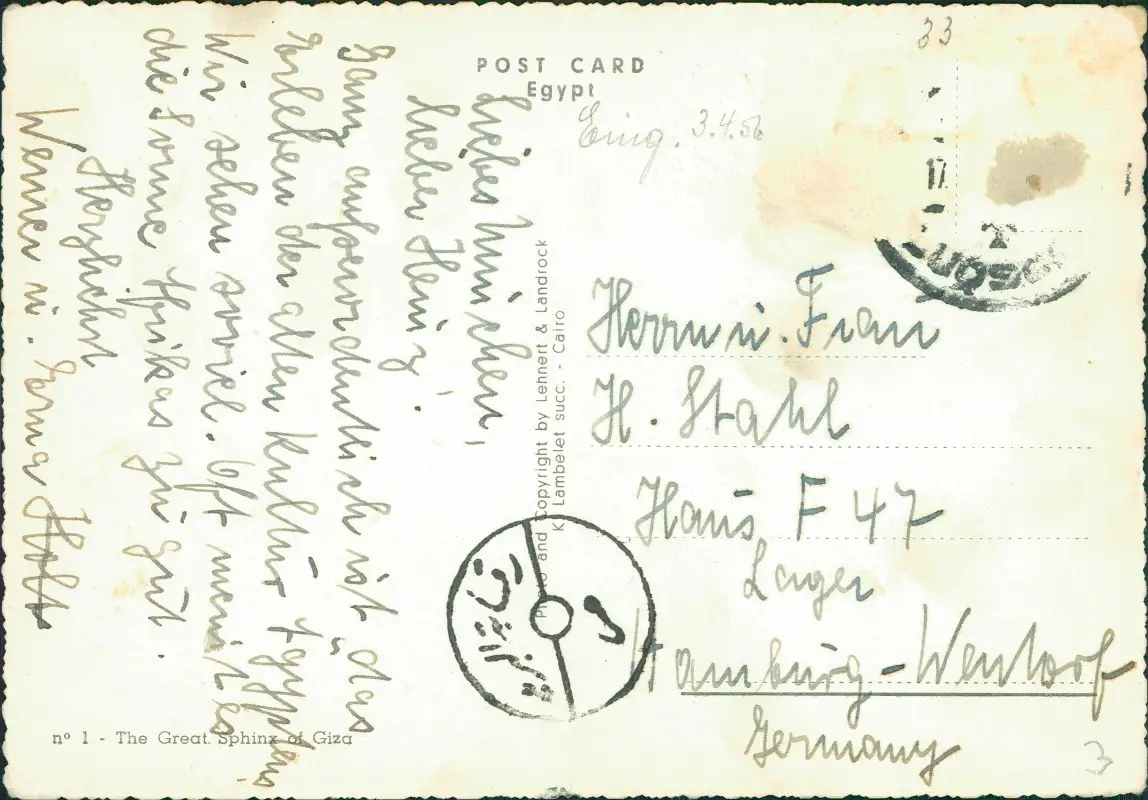 POST CARD
Egypt
33
Eing. 3.4.56
17
Liebes Minchen,
lieber Heinz,
Ganz außerordentlich ist das
Erleben der alten Kultur Ägyptens
Wir sehen soviel. Oft meint es
die Sonne Afrikas zu gut.
Herzlichst
Werner u. Erna Holst
Photo and Copyright by Lehnert & Landrock
K. Lambelet succ. - Cairo
Herrn u. Frau
H. Stahl
Haus F 47
Lager
Hamburg-Wentorf
Germany
3
nº 1 - The Great Sphinx of Giza